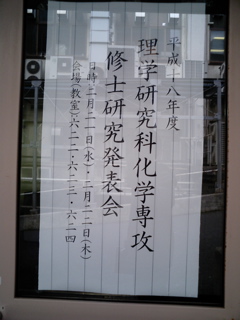 平成十八年度
理学研究科化学専攻
修士研究発表会
日時 二月二一日(水)・二月二二日(木)
会場(教室) 六二二・六二三・六二四